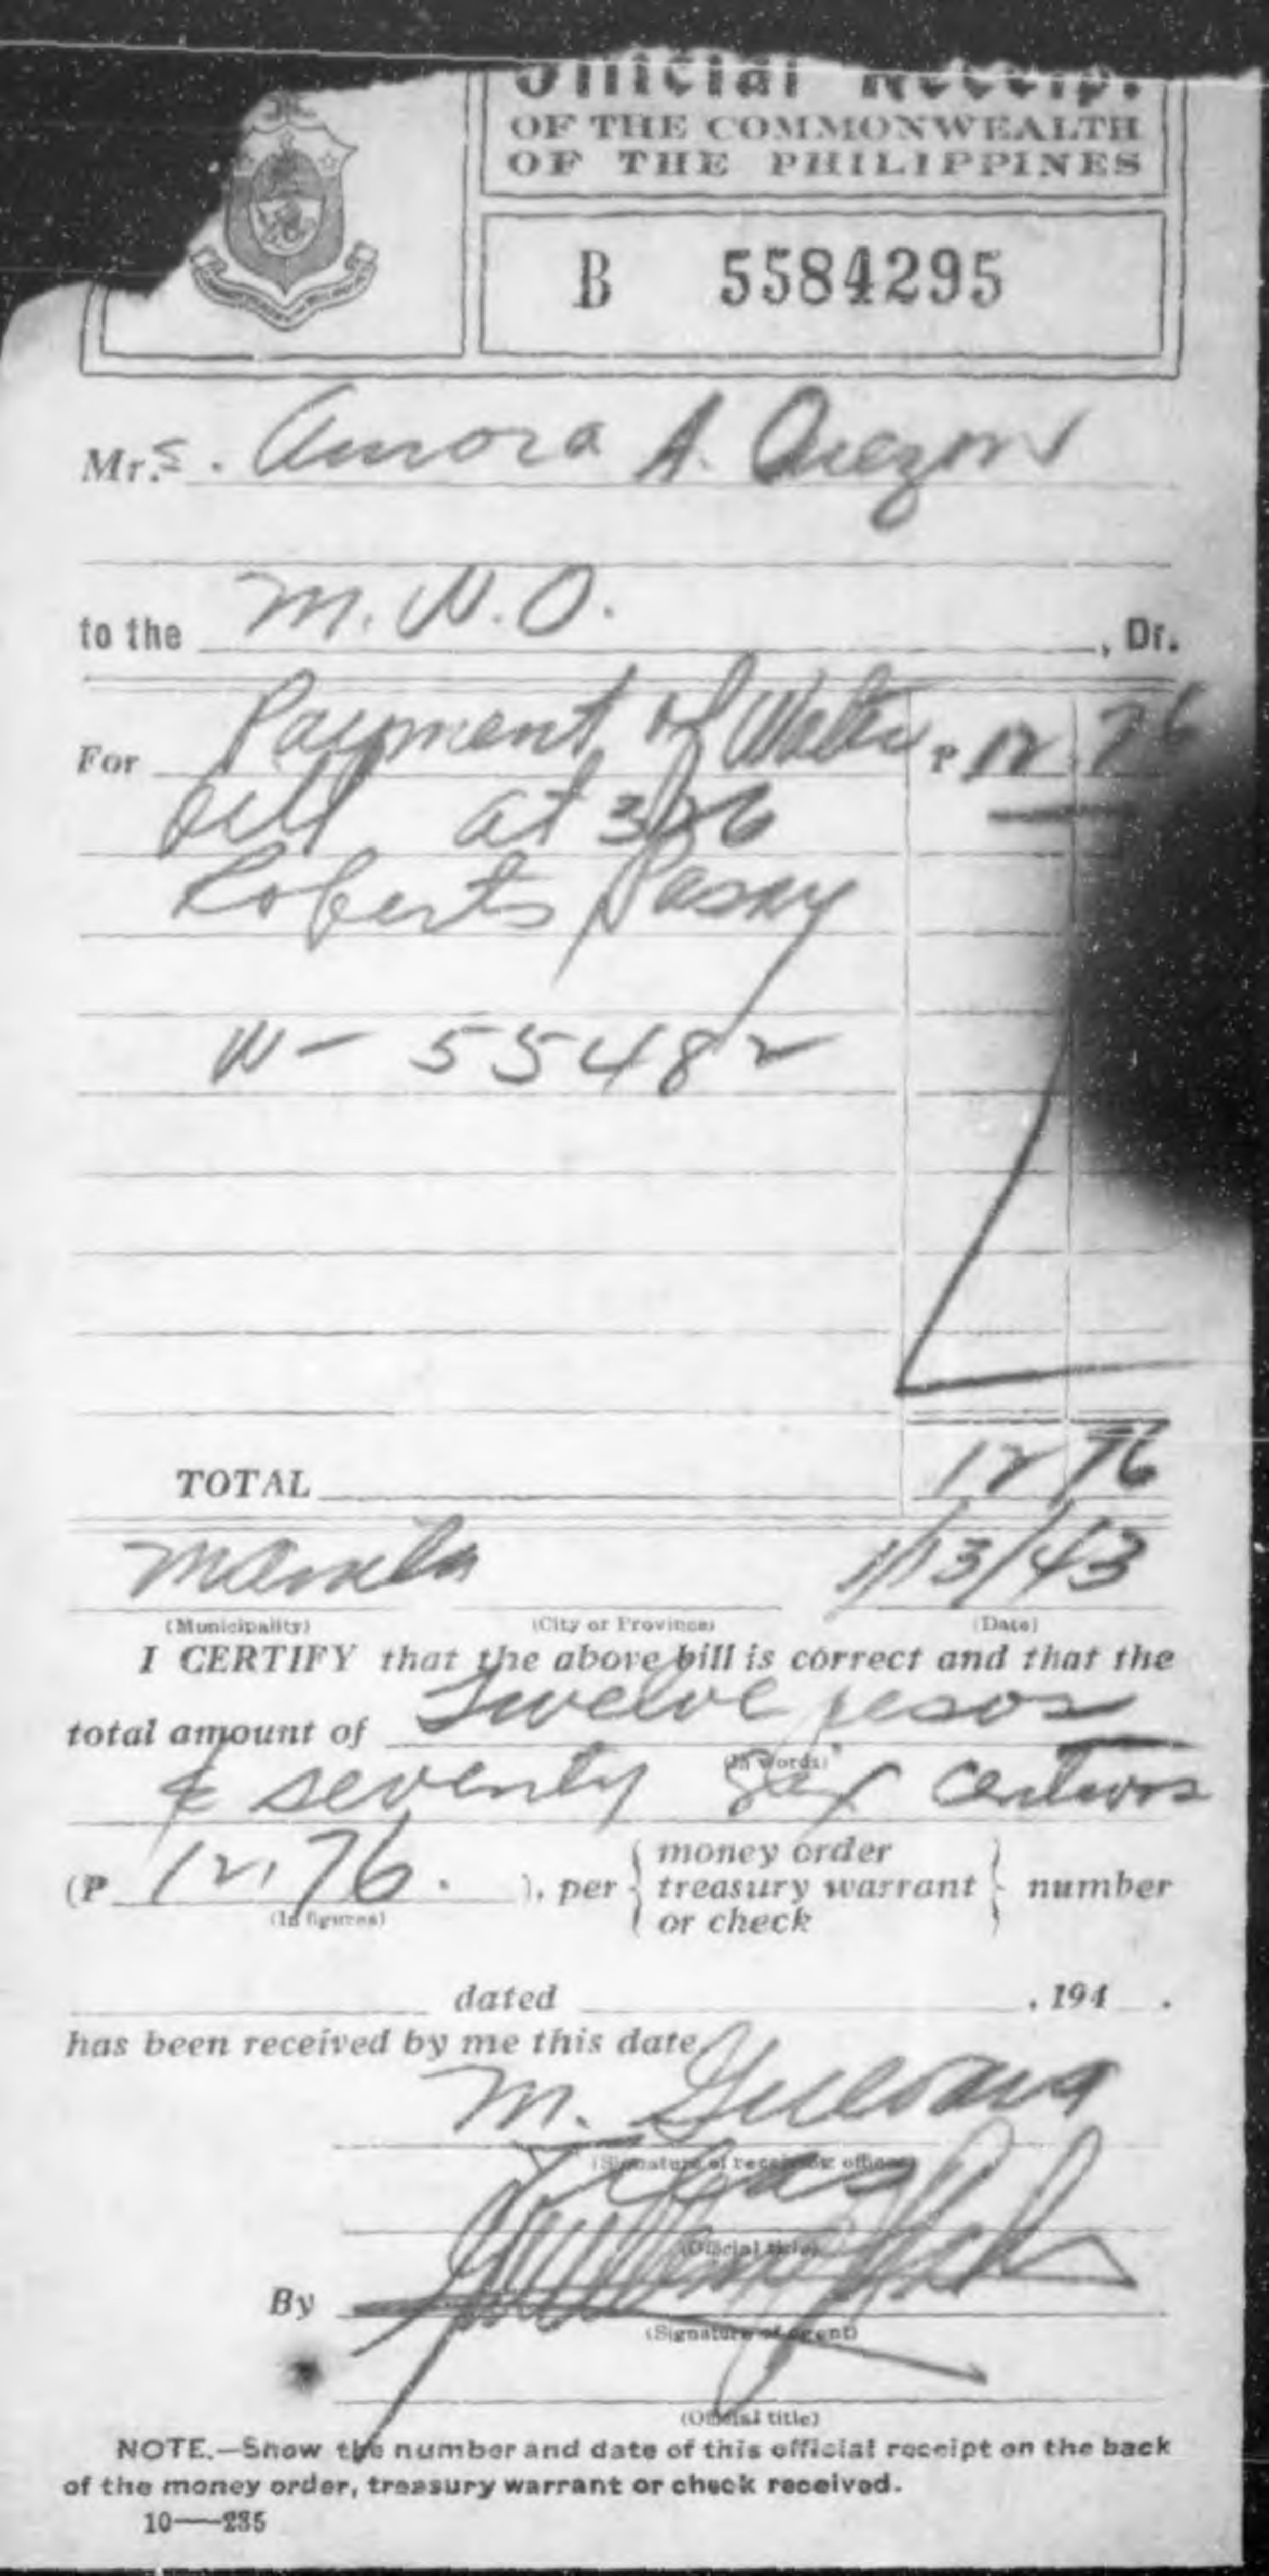 Official Receipt
OF THE COMMONWEALTH
OF THE PHILIPPINES
B 5584295
Mrs. Aurora A. Quezon
to the M.W.D. , Dr.
For Payment of Water ₱ 12.76
bill at 326
Roberts Pasay
W- 55482
TOTAL 12 76
Manila 1/13/43
(Municipality) (City or Province) (Date)
I CERTIFY that the above bill is correct and that the
total amount of Twelve pesos
(In words)
& seventy six centavos
(₱ 12.76. ), per { money order treasury warrant or check } number
dated , 194 .
has been received by me this date
M. Guevara
(Signature of receiving officer)
(Official title)
By
(Signature of agent)
(Official title)
NOTE.—Show the number and date of this official receipt on the back
of the money order, treasury warrant or check received.
10—235